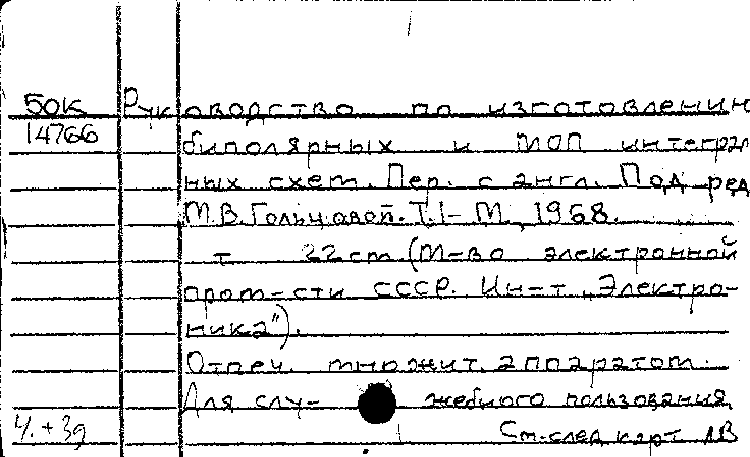 БОК Руководство по изготовлении
14766 биполярных и МОП интеграл
ных схем. Пер. с англ. Под ред
М.В. Гольцовой. Т.1- М., 1968.
т 22 cm. (М-во электронной
пром-сти СССР. Ин-т "Электро-
ника").
Отпеч. множит. аппаратом.
Для слу- жебного пользования
Ч. + 3д См. след карт ЛВ